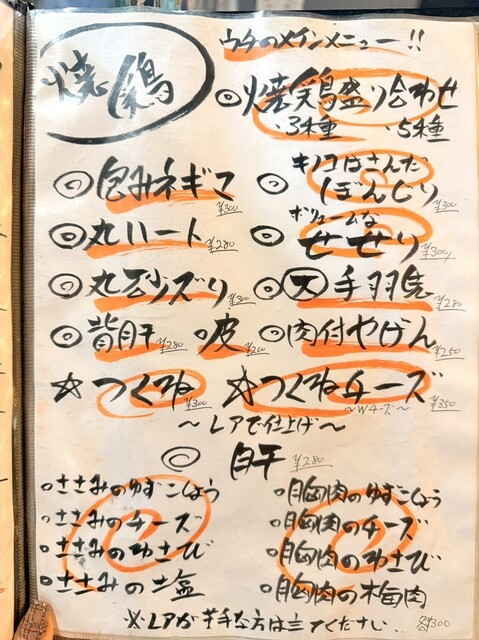 焼鶏
ウチのメインメニュー!!
◎焼鶏盛り合わせ
・3種 ・5種
◎包みネギマ ¥300
◎キノコはさんだぼんじり ¥300
◎丸ハート ¥280
◎ボリュームなせせり ¥300
◎丸砂ズリ ¥300
◎大手羽先 ¥280
◎背肝 ¥280
○皮 ¥200
◎肉付やげん ¥250
☆つくね ¥300
☆つくねチーズ ¥350
〜Wチーズ〜
〜レアで仕上げ〜
◎白干 ¥280
○ささみのゆずこしょう
○ささみのチーズ
○ささみのわさび
○ささみの塩
○胸肉のゆずこしょう
○胸肉のチーズ
○胸肉のわさび
○胸肉の梅肉
各¥300
※レアが苦手な方は言てください..